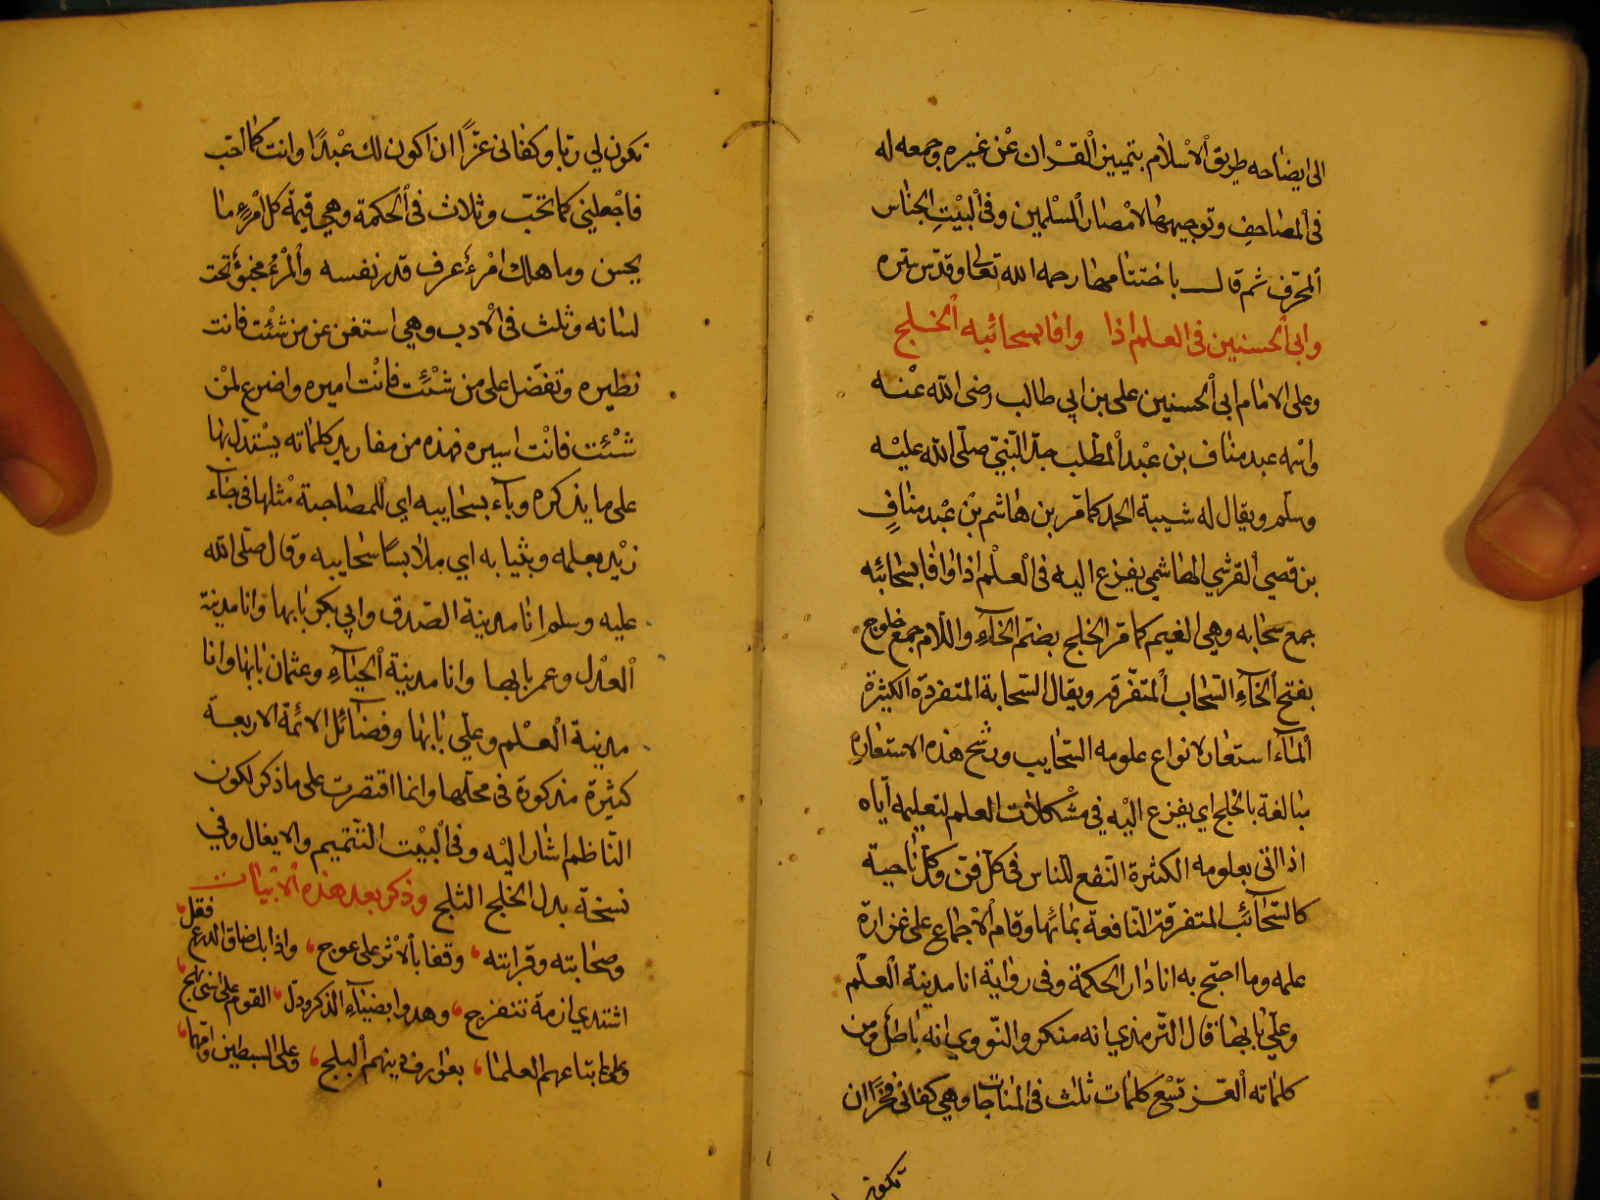 الى ايضاحه طريق الاسلام بتمييز القران عن غيره وجمعه له
فى المصاحف وتوجيهها لامصار المسلمين وفى البيت الجناس
المحرّف ثم قال باختتامها رحمه الله تعالى وقدّس سرّه
وابى الحسنين فى العلم اذا وافا بسحائبه الخلج
وعلى الامام ابى الحسنين على بن ابي طالب رضى الله عنه
واسمه عبد مناف بن عبد المطّلب جدّ النّبيّ صلّى الله عليه
وسلم ويقال له شيبة الحمد كما مّر بن هاشم بن عبد مناف
بن قصي القرشي الهاشمي يفزع اليه فى العلم اذا وافا بسحائبه
جمع سحابه وهي الغيم كما مّر الخلج بضمّ الخاء واللام جمع خلوج
بفتح الخاء السّحاب المتفرّق ويقال السّحابة المتفردة الكثيرة
المآء استعار لانواع علومه السّحايب ورشح هذه الاستعارة
مبالغة بالخلج اي يفزع اليه في مشكلات العلم لتعليمه آياه
اذا اتى بعلومه الكثيرة النّفع للنّاس فى كلّ فنّ وكلّ ناحية
كالسّحائب المتفرقة النّافعة بمائها وقام الاجماع على غزارة
علمه وما احتج به انا دار الحكمة وفى رواية انا مدينة العلم
وعليّ بابها قال التّرمذي انه منكر والنّووي انه باطل ومن
كلماته الغرّ تسع كلمات ثلث فى المناجات وهي كفانى فخرًا ان
تكون
تكون لي ربّا وكفانى عزًّا ان اكون لك عبدًا وانت كما احّب
فاجعلني كما تحبّ وثلاث فى الحكمة وهي قيمة كل امرءٍ ما
يحسن وما هلك امرءٌ عرف قدر نفسه والمرءُ مخبوءٌ تحت
لسانه وثلث فى الادب وهي استغن عن من شئت فانت
نظيره وتفضّل على من شئت فانت اميره واضرع لمن
شئت فانت اسيره فهذه من مفاريد كلماته يستدّل بها
على ما يذكره وبآء بسحايبه اي للمصاحبة مثلها فى جآء
زيد بعلمه وبثيابه اي ملابسًا سحايبه وقال صلّى الله
عليه وسلم انا مدينة الصّدق وابي بكر بابها وانا مدينة
العدل وعمر بابها وانا مدينة الحيآء وعثمان بابها وانا
مدينة العلم وعليّ بابها وفضائل الائمّة الاربعة
كثيرة مذكورة فى محلّها وانما اقتصرت على ما ذكر لكون
النّاظم اشار اليه وفى البيت التّتميم والايغال وفي
نسخة بدل الخلج الثلج وذكر بعد هذه الابيات
وصحابته وقرابته وقفا بالاثر على عوج واذا بك ضاق الذرع فقل
اشتدي ازمة تنفرج وهدوا بضيآء الذكر ودلّ القوم على نهج
وعلى اتباعهم العلما بعوارف دينهم البلج وعلى السبطين وامّهما